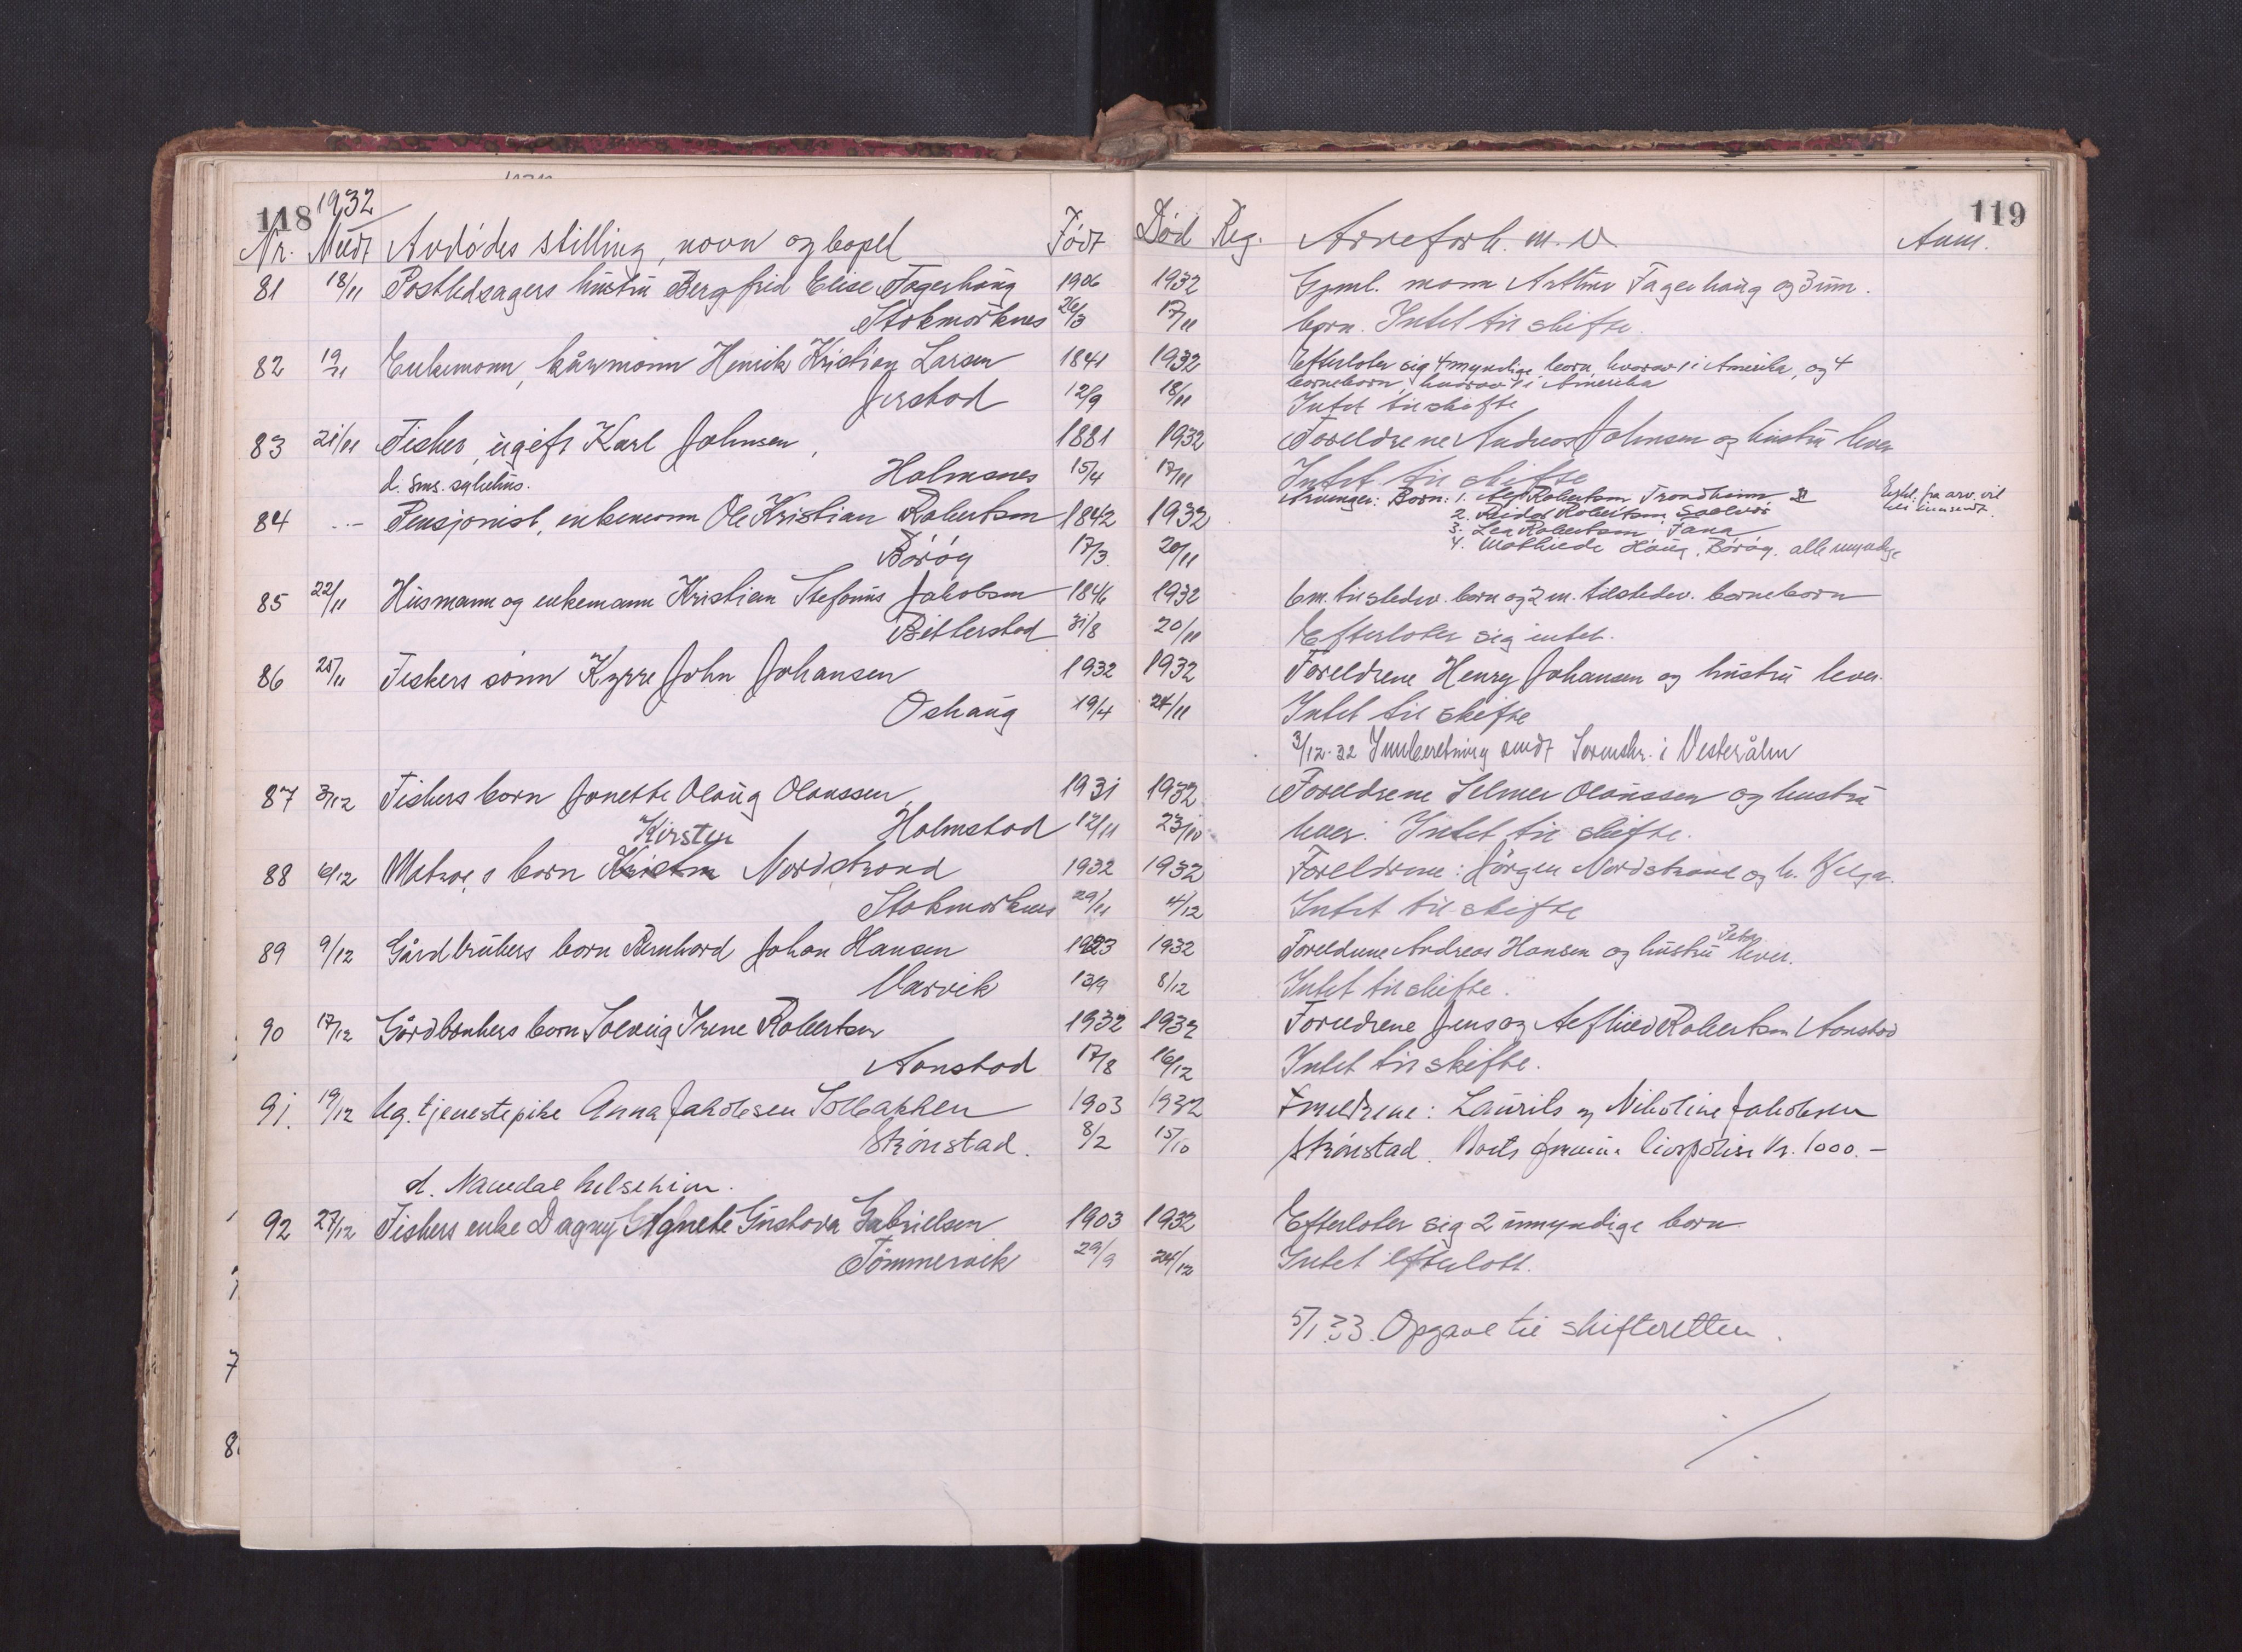 118 1932
Nr. Meldt Avdødes stilling, navn og bopel Født Død Reg. Arveforh. m. v. Anm. 119
81 18/11 Postledsagers hustru Bergfrid Elise Fagerhaug 1906 1932 Gjenl. mann Arthur Fagerhaug og 3 um.
Stokmarknes 26/3 17/11 barn. Intet til skifte.
82 19/11 Enkemann, kårmann Henrik Kristian Larsen 1841 1932 Efterlater sig 4 myndige barn, hvorav 1 i Amerika, og 4
barnebarn, hvorav 1 i Amerika
Jerstad 12/9 18/11 Intet til skifte
83 21/11 Fisker, ugift Karl Johnsen, 1881 1932 Foreldrene Andreas Johnsen og hustru lever
d. sms. sykehus. Holmsnes 15/4 17/11 Intet til skifte
84 -.- Pensjonist, enkemann Ole Kristian Robertsen 1842 1932 Arvinger: Barn: 1. Alf Robertsen Trondheim
2. Reidar Robertsen
3. Lea Robertsen, Tana
Børøy 17/3. 20/11 4. Mathilde Haug, Børøy. alle myndige
Erkl. fra arv. vil
bli innsendt.
85 22/11 Husmann og enkemann Kristian Stefanus Jakobsen 1846 1932 6 m. tilstedev. barn og 2 m. tilstedev. barnebarn
Bitterstad 31/8 20/11 Efterlater sig intet.
86 25/11 Fiskers sønn Kyrre John Johansen 1932 1932 Foreldrene Henry Johansen og hustru lever.
Oshaug 19/4 24/11 Intet til skifte
3/12-32 Innberetning sendt Sorenskr. i Vesterålen
87 3/12 Fiskers barn Janette Olaug Olaussen, 1931 1932 Foreldrene Selmer Olaussen og hustru
Holmstad 12/11 23/10 lever. Intet til skifte.
Kirsten
88 6/12 Matros's barn Kristen Nordstrand 1932 1932 Foreldrene: Jørgen Nordstrand og h. Helga.
Stokmarknes 29/11 4/12 Intet til skifte
89 9/12 Gårdbrukers barn Bernhard Johan Hansen 1923 1932 Foreldrene Andreas Hansen og hustru lever.
Varvik 13/9 8/12 Intet til skifte.
90 17/12 Gårdbrukers barn Solveig Irene Robertsen 1932 1932 Foreldrene Jens og Alfhild Robertsen Aanstad
Aanstad 17/8 16/12 Intet til skifte.
91. 19/12 Ug. tjenestepike Anna Jakobsen Solbakken 1903 1932 Foreldrene: Laurits og Nikoline Jakobsen
Strønstad. 8/2 15/10 Strønstad. livspolise kr. 1000.-
d. Namdal helseheim.
92 27/12 Fiskers enke Dagny Agnete Gustava Gabrielsen 1903 1932 Efterlater sig 2 umyndige barn
Tømmervik 29/9 24/12 Intet efterlatt.
5/1 33. Opgave til skifteretten.